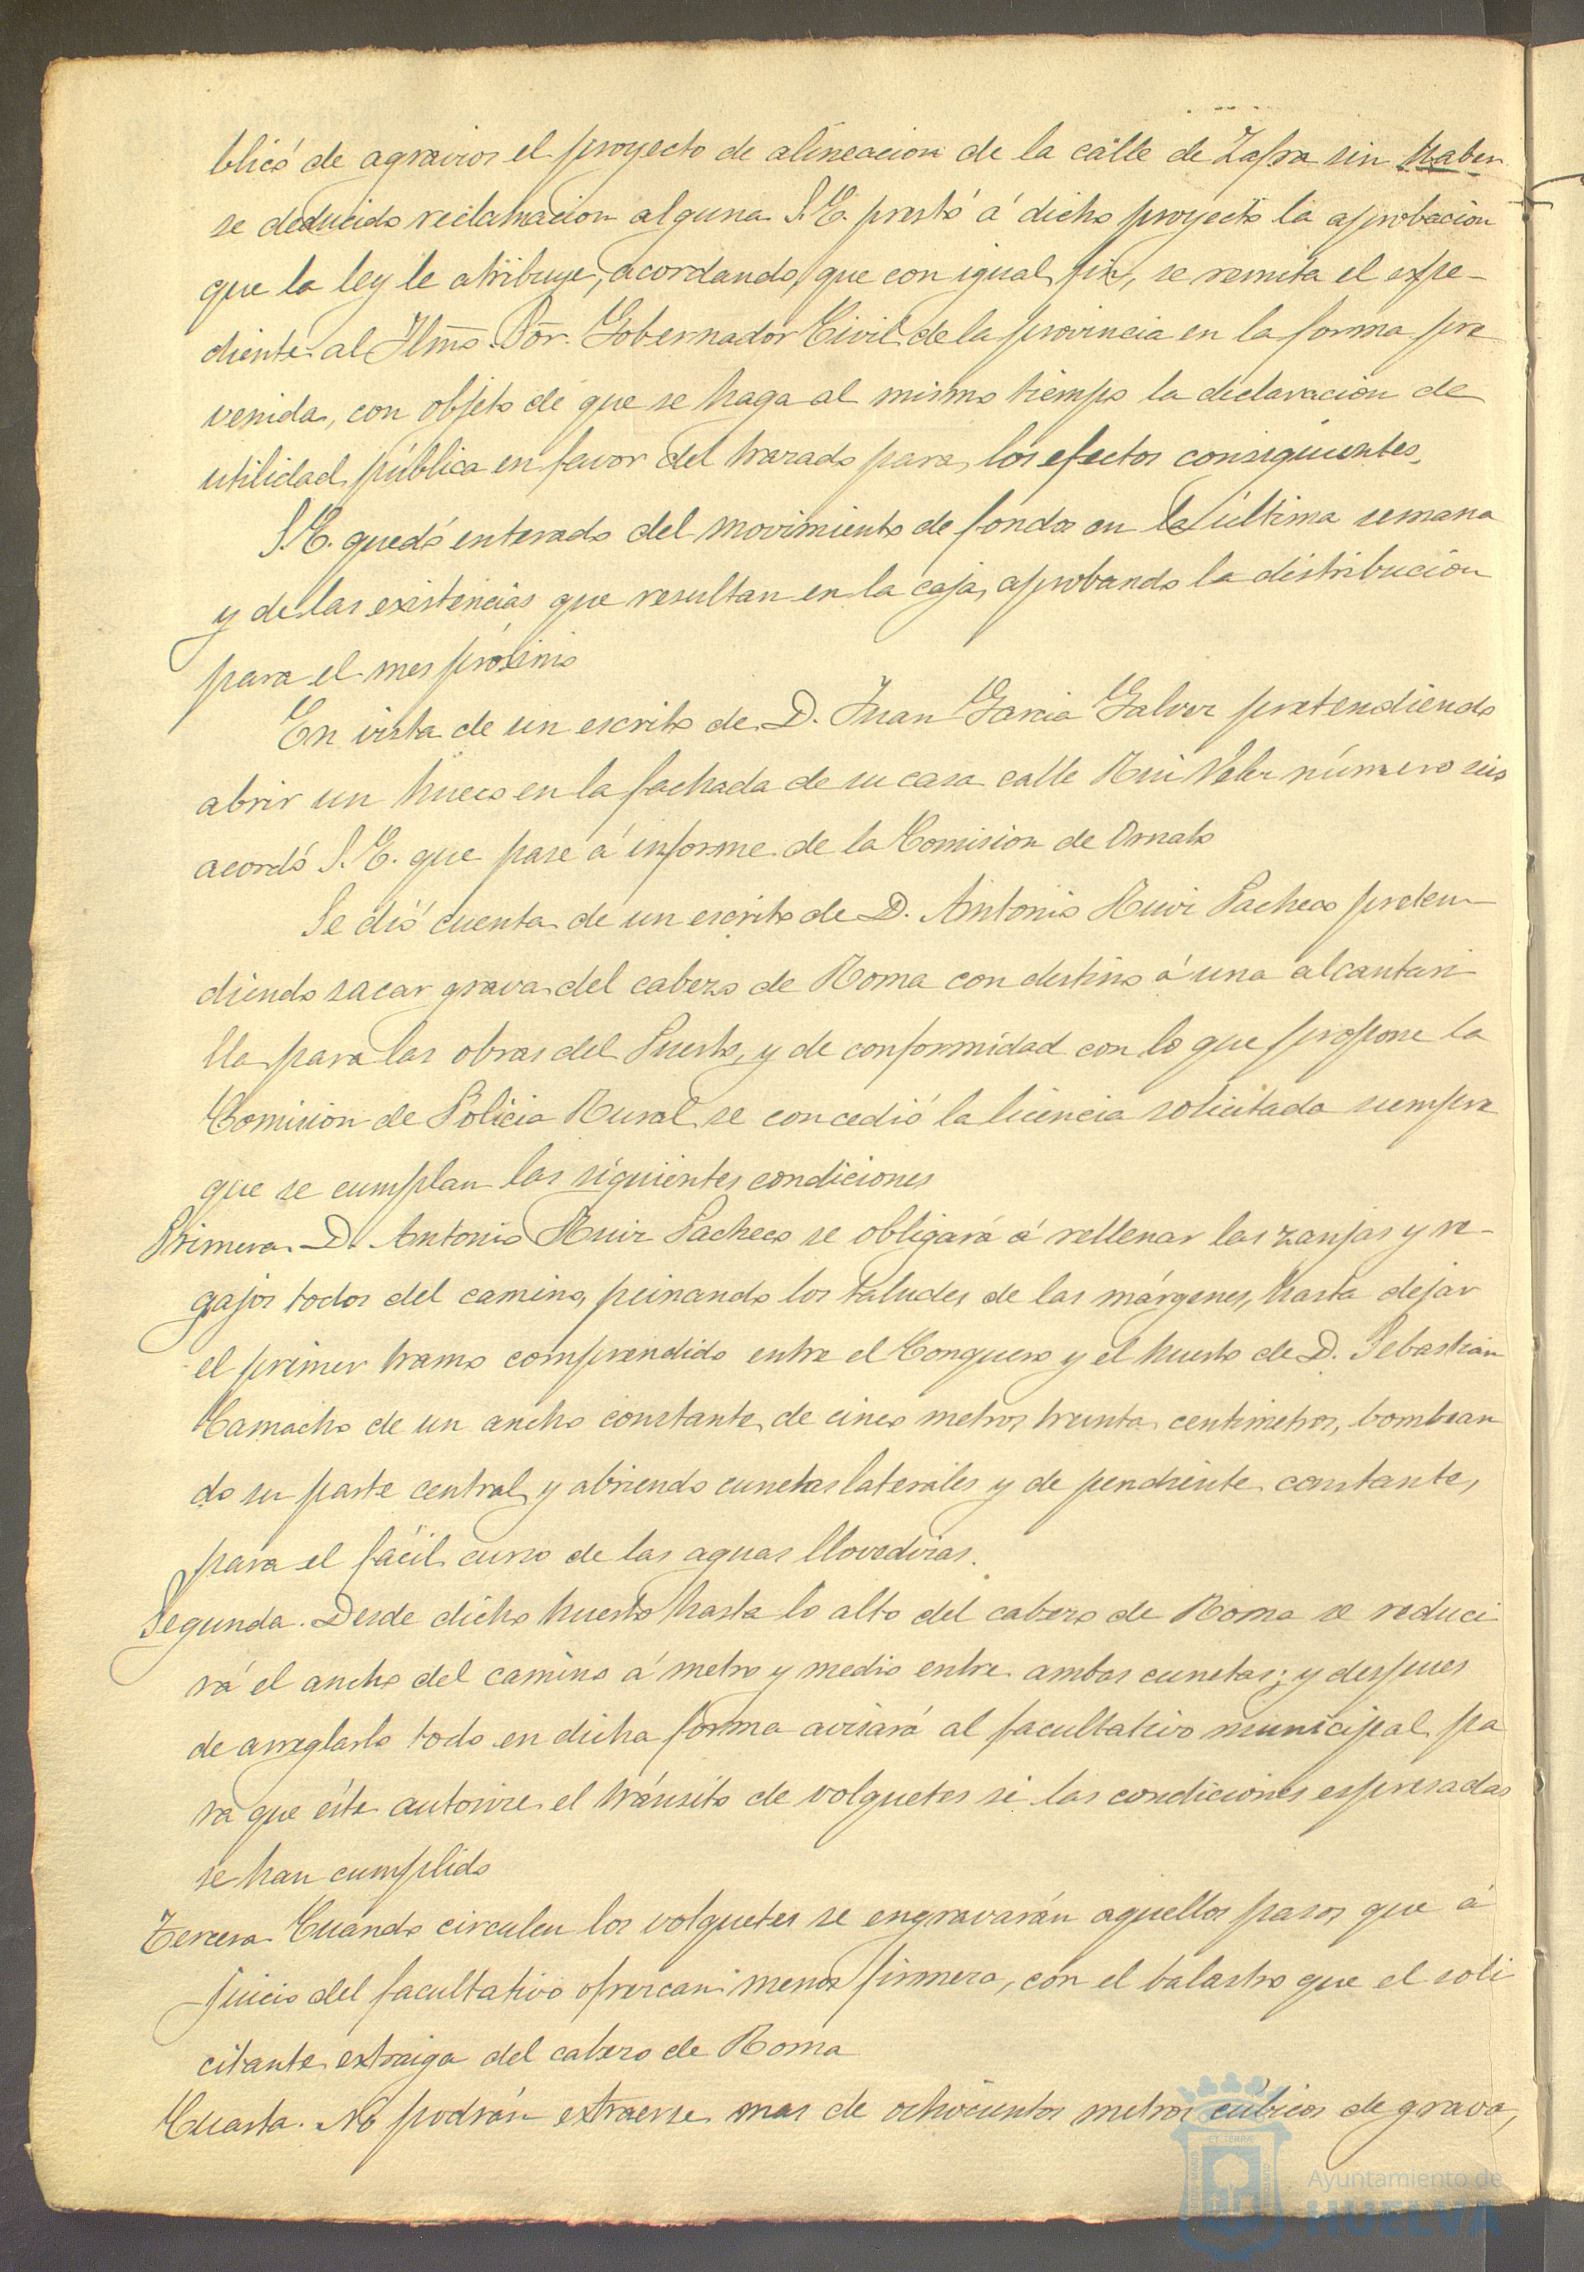 blicó de agravios el proyecto de alineacion de la calle de Zafra sin haber
se deducido reclamacion alguna S.E. prestó á dicho proyecto la aprobacion
que la ley le atribuye, acordando, que con igual fin, se remita el expe-
diente al Ilmo. Sor. Gobernador Civil de la provincia en la forma pre
venida, con objeto de que se haga al mismo tiempo la declaracion de
utilidad pública en favor del trazado para los efectos consiguientes.
S.E. quedó enterado del movimiento de fondos en la última semana
y de las existencias que resultan en la caja, aprobando la distribucion
para el mes próximo
En vista de un escrito de D. Juan Garcia Galvez pretendiendo
abrir un hueco en la fachada de su casa calle Rui Velez número seis
acordó S.E. que pase á informe de la Comision de Ornato
Se dió cuenta de un escrito de D. Antonio Ruiz Pacheco preten-
diendo sacar grava del cabezo de Roma con destino á una alcantari
lla para las obras del Puerto, y de conformidad con lo que propone la
Comision de Policia Rural se concedió la licencia solicitada siempre
que se cumplan las siguientes condiciones
Primera. D. Antonio Ruiz Pacheco se obligará á rellenar las zanjas y re-
gajos todos del camino, peinando los taludes de las márgenes, hasta dejar
el primer tramo comprendido entre el Conquero y el huerto de D. Sebastian
Camacho de un ancho constante, de cinco metros treinta centimetros, bombean
do su parte central, y abriendo cunetas laterales y de pendiente constante,
para el fácil curso de las aguas llovedizas.
Segunda. Desde dicho huerto hasta lo alto del cabezo de Roma se reduci
rá el ancho del camino á metro y medio entre ambas cunetas; y despues
de arreglarlo todo en dicha forma avisará al facultativo municipal pa
ra que éste autorize el tránsito de volquetes si las condiciones espresadas
se han cumplido
Tercera Cuando circulen los volquetes se engravarán aquellos pasos que á
juicio del facultativo ofrezcan menos firmeza, con el balastro que el soli
citante extraiga del cabezo de Roma
Cuarta. No podrán extraerse mas de ochocientos metros cúbicos de grava,
Ayuntamiento de
HUELVA